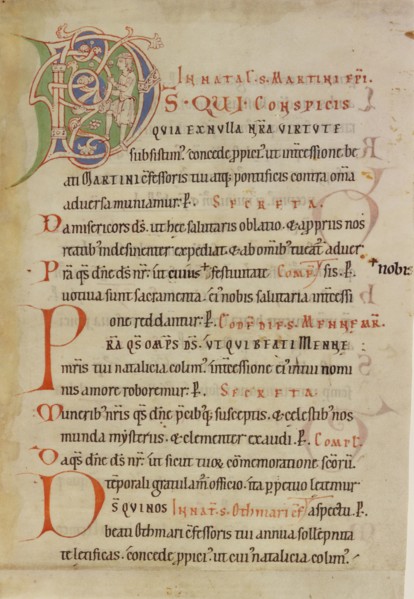 IN NATAL̅ · S · MARTINI EP̅I ·
D̅S · QUI CONSPICIS
QUIA EX NULLA NR̅A VIRTUTE
subsistim᷒. concede ꝓpiciꝰ. ut int̅cessione be
ati MARTINI c̅fessoris tui atq; pontificis contra om̅a
aduersa muniamur. ꝑ. SECRETA.
Da misericors ds̅. ut hec salutaris oblatio. & a ꝓpriis nos
reatib; indesinenter expediat. & ab om̅ib; tueat᷒ aduer
Pr̅a qs̅ dn̅e ds̅ nr̅. ut cuius festiuitate COMPL̅ sis. ꝑ.
nobis
uotiua sunt sacramenta. eiꝰ nobis salutaria int̅cessi
one reddantur. ꝑ. COD̅ DIE S. MENNE MR̅.
PR̅A QS̅ OMPS̅ DS̅. UT QUI BEATI MENNE
mr̅is tui natalicia colimꝰ. int̅cessione eiꝰ in tui nomi
nis amore roboremur. ꝑ. SECRETA
Munerib; nr̅is qs̅ dn̅e p̅cib; q; susceptis. & celestib; nos
munda mysteriis. & clementer exaudi. ꝑ. COMPL̅.
Da qs̅ dn̅e ds̅ nr̅. ut sicut tuoꝝ co̅memoratione sc̅oꝝ
te̅porali gratulam᷒ officio. ita ꝑpetuo letemur
DS̅ QUI NOS IN NAT̅. S. OTHMARI CF̅ aspectu. ꝑ.
beati Othmari c̅fessoris tui annua solle̅pnita
te letificas. concede ꝓpiciꝰ. ut cuiꝰ natalicia colimꝰ.